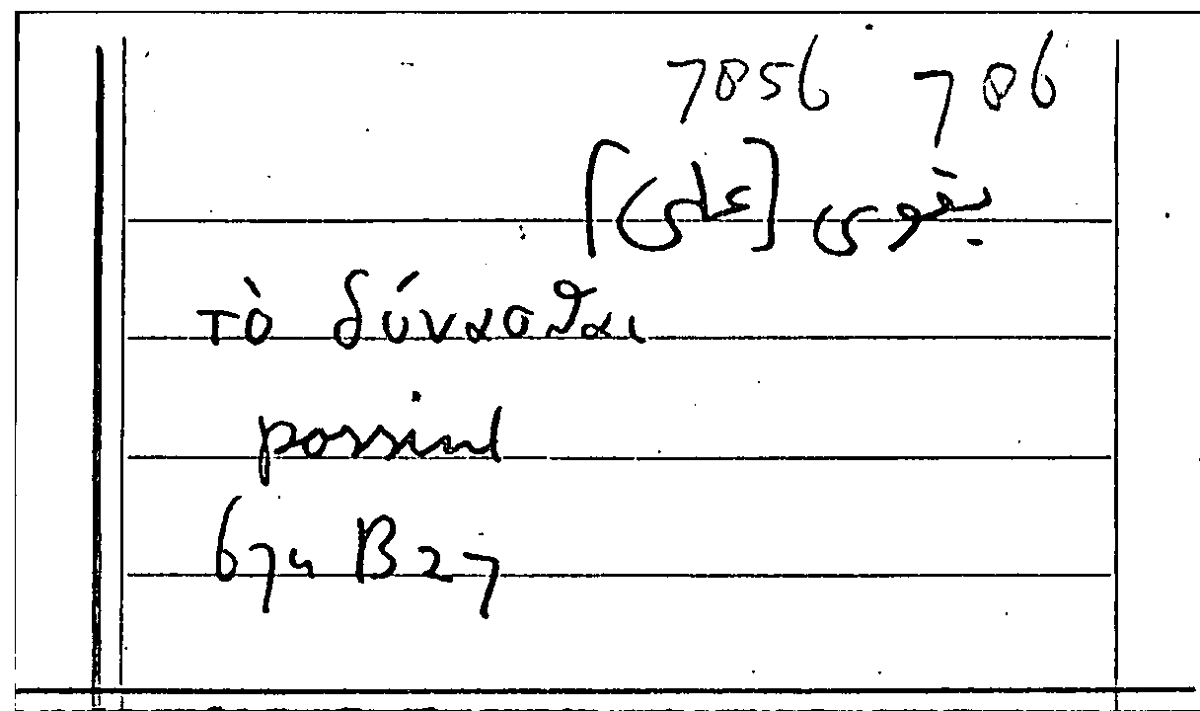 7056 706
يقوى [على]
τὸ δύνασθαι
possint
674 B 27